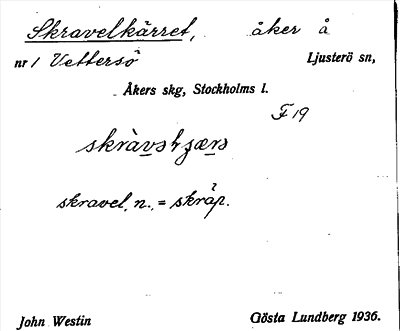 Skravelkärret, åker å
nr 1 Vettersö Ljusterö sn,
Åkers skg, Stockholms l.
F 19
skravel, n., = skråp.
John Westin Gösta Lundberg 1936.